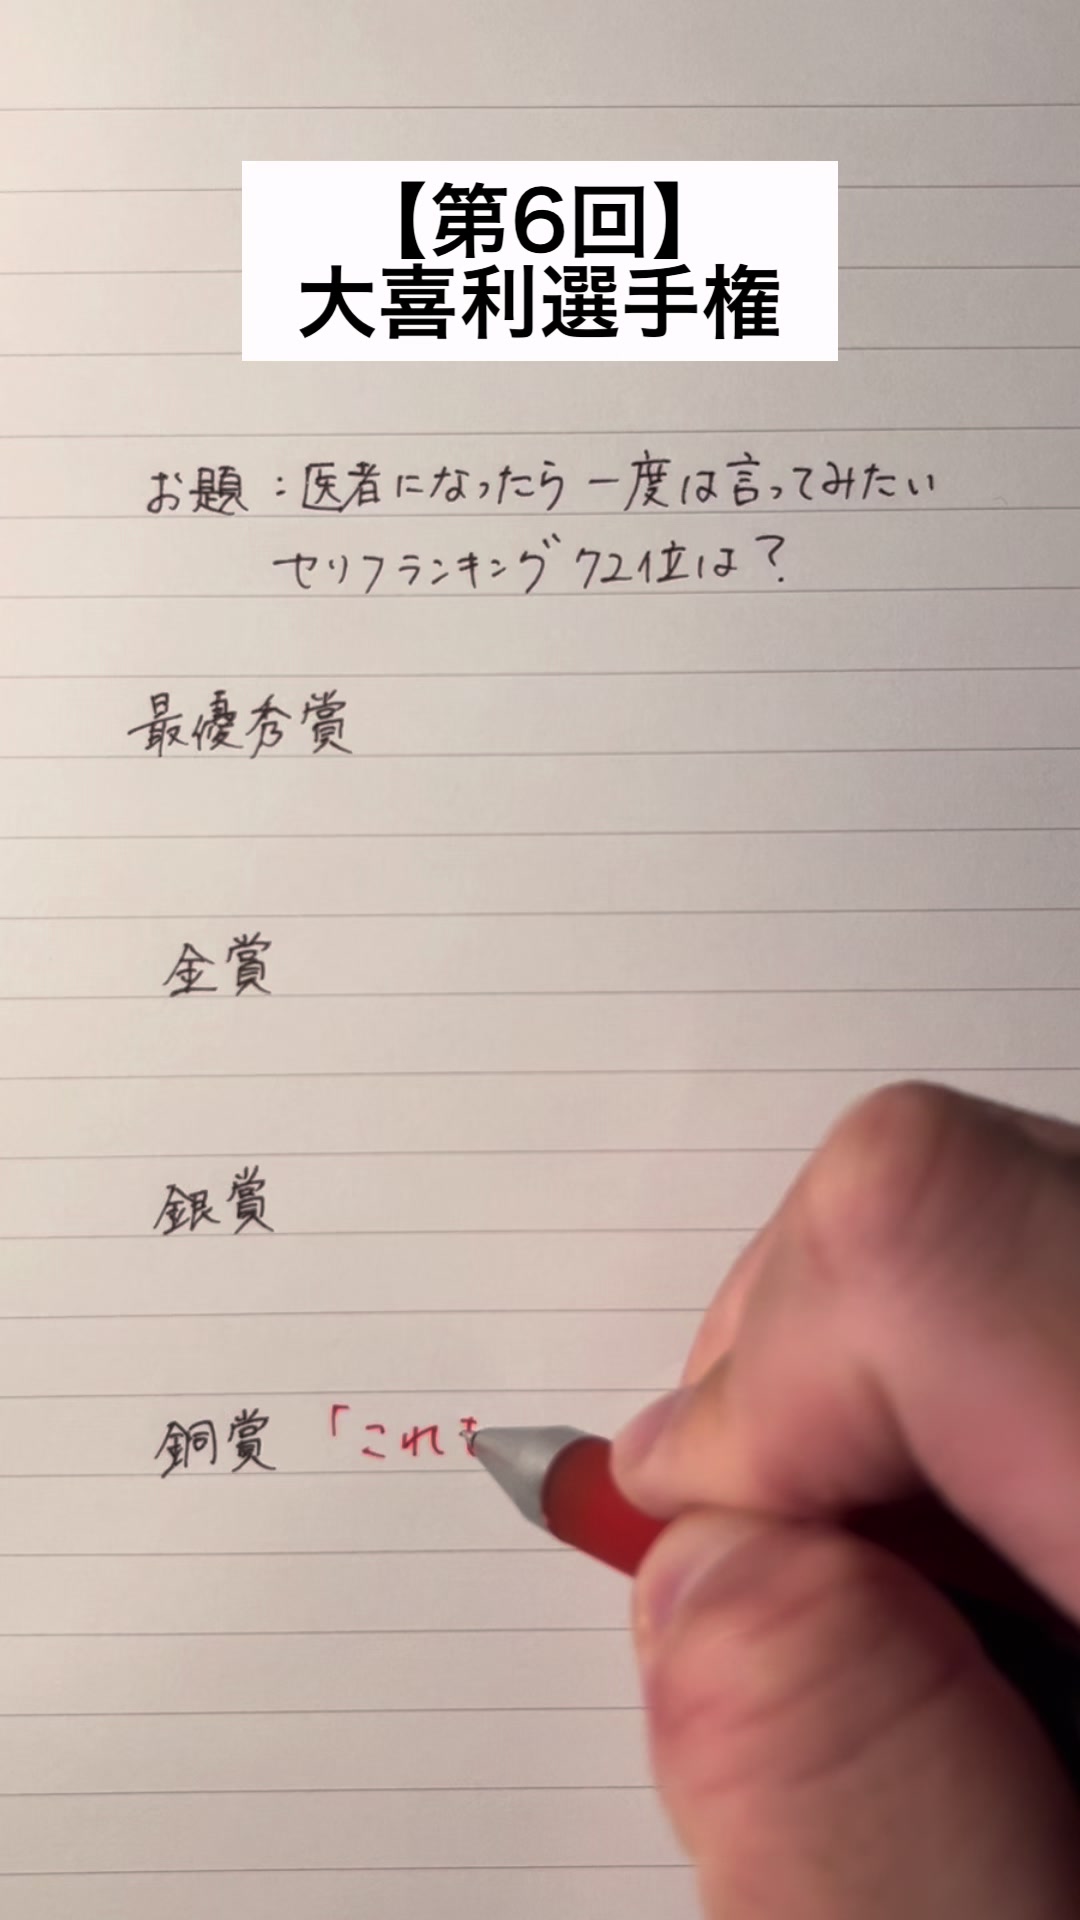 【第6回】
大喜利選手権
お題：医者になったら一度は言ってみたい
セリフランキング72位は？
最優秀賞
金賞
銀賞
銅賞 「これ